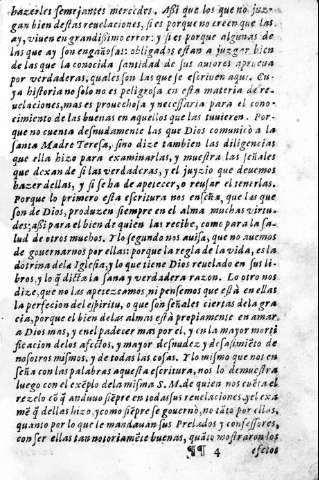 hazerles semejantes mercedes. Assi que los que no juz-
gan bien destas reuelaciones, si es porque no creen que las
ay, viuen en grandissimo error: y si es porque algunas de
las que ay son engañosas: obligados estan a juzgar bien
de las que la conocida santidad de sus autores aprueua
por verdaderas, quales son las que se escriuen aqui. Cu-
ya historia no solo no es peligrosa en esta materia de re-
uelaciones, mas es prouechosa y necessaria para el cono-
cimiento de las buenas en aquellos que las tuuieren. Por-
que no cuenta desnudamente las que Dios comunicò a la
santa Madre Teresa, sino dize tambien las diligencias
que ella hizo para examinarlas, y muestra las señales
que dexan de si las verdaderas, y el juyzio que deuemos
hazer dellas, y si se ha de apetecer, o reusar el tenerlas.
Porque lo primero esta escritura nos enseña, que las que
son de Dios, produzen siempre en el alma muchas virtu-
des; assi para el bien de quien las recibe, como para la sa-
lud de otros muchos. Y lo segundo nos auisa, que no auemos
de gouernarnos por ellas: porque la regla de la vida, es la
dotrina dela Iglesia, y lo que tiene Dios reuelado en sus li-
bros, y lo q̃ dicta la sana y verdadera razon. Lo otro nos
dize, que no las apetezcamos, ni pensemos que està en ellas
la perfecion del espiritu, o que son señales ciertas dela gra-
cia, porque el bien delas almas està propiamente en amar
a Dios mas, y en el padecer mas por el, y en la mayor morti
ficacion delos afectos, y mayor desnudez y desasimiẽto de
nosotros mismos, y de todas las cosas. Y lo mismo que nos en
seña con las palabras aquesta escritura, nos lo demuestra
luego con el exẽplo dela misma S. M. de quien nos cuẽta el
rezelo cõ q̃ anduuo siẽpre en todas sus reuelaciones, y el exa
mẽ q̃ dellas hizo, y como siẽpre se gouernò, no tãto por ellas,
quanto por lo que le mandauan sus Prelados y confessores,
con ser ellas tan notoriamẽte buenas, quãto mostraron los
¶¶ 4 efetos